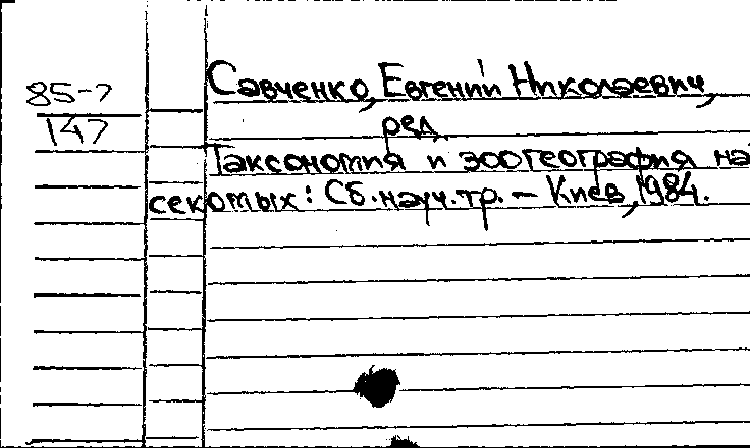 85-7
147
Савченко, Евгений Николаевич,
ред.
Таксономия и зоогеография на
секомых: Сб. науч. тр. — Киев, 1984.